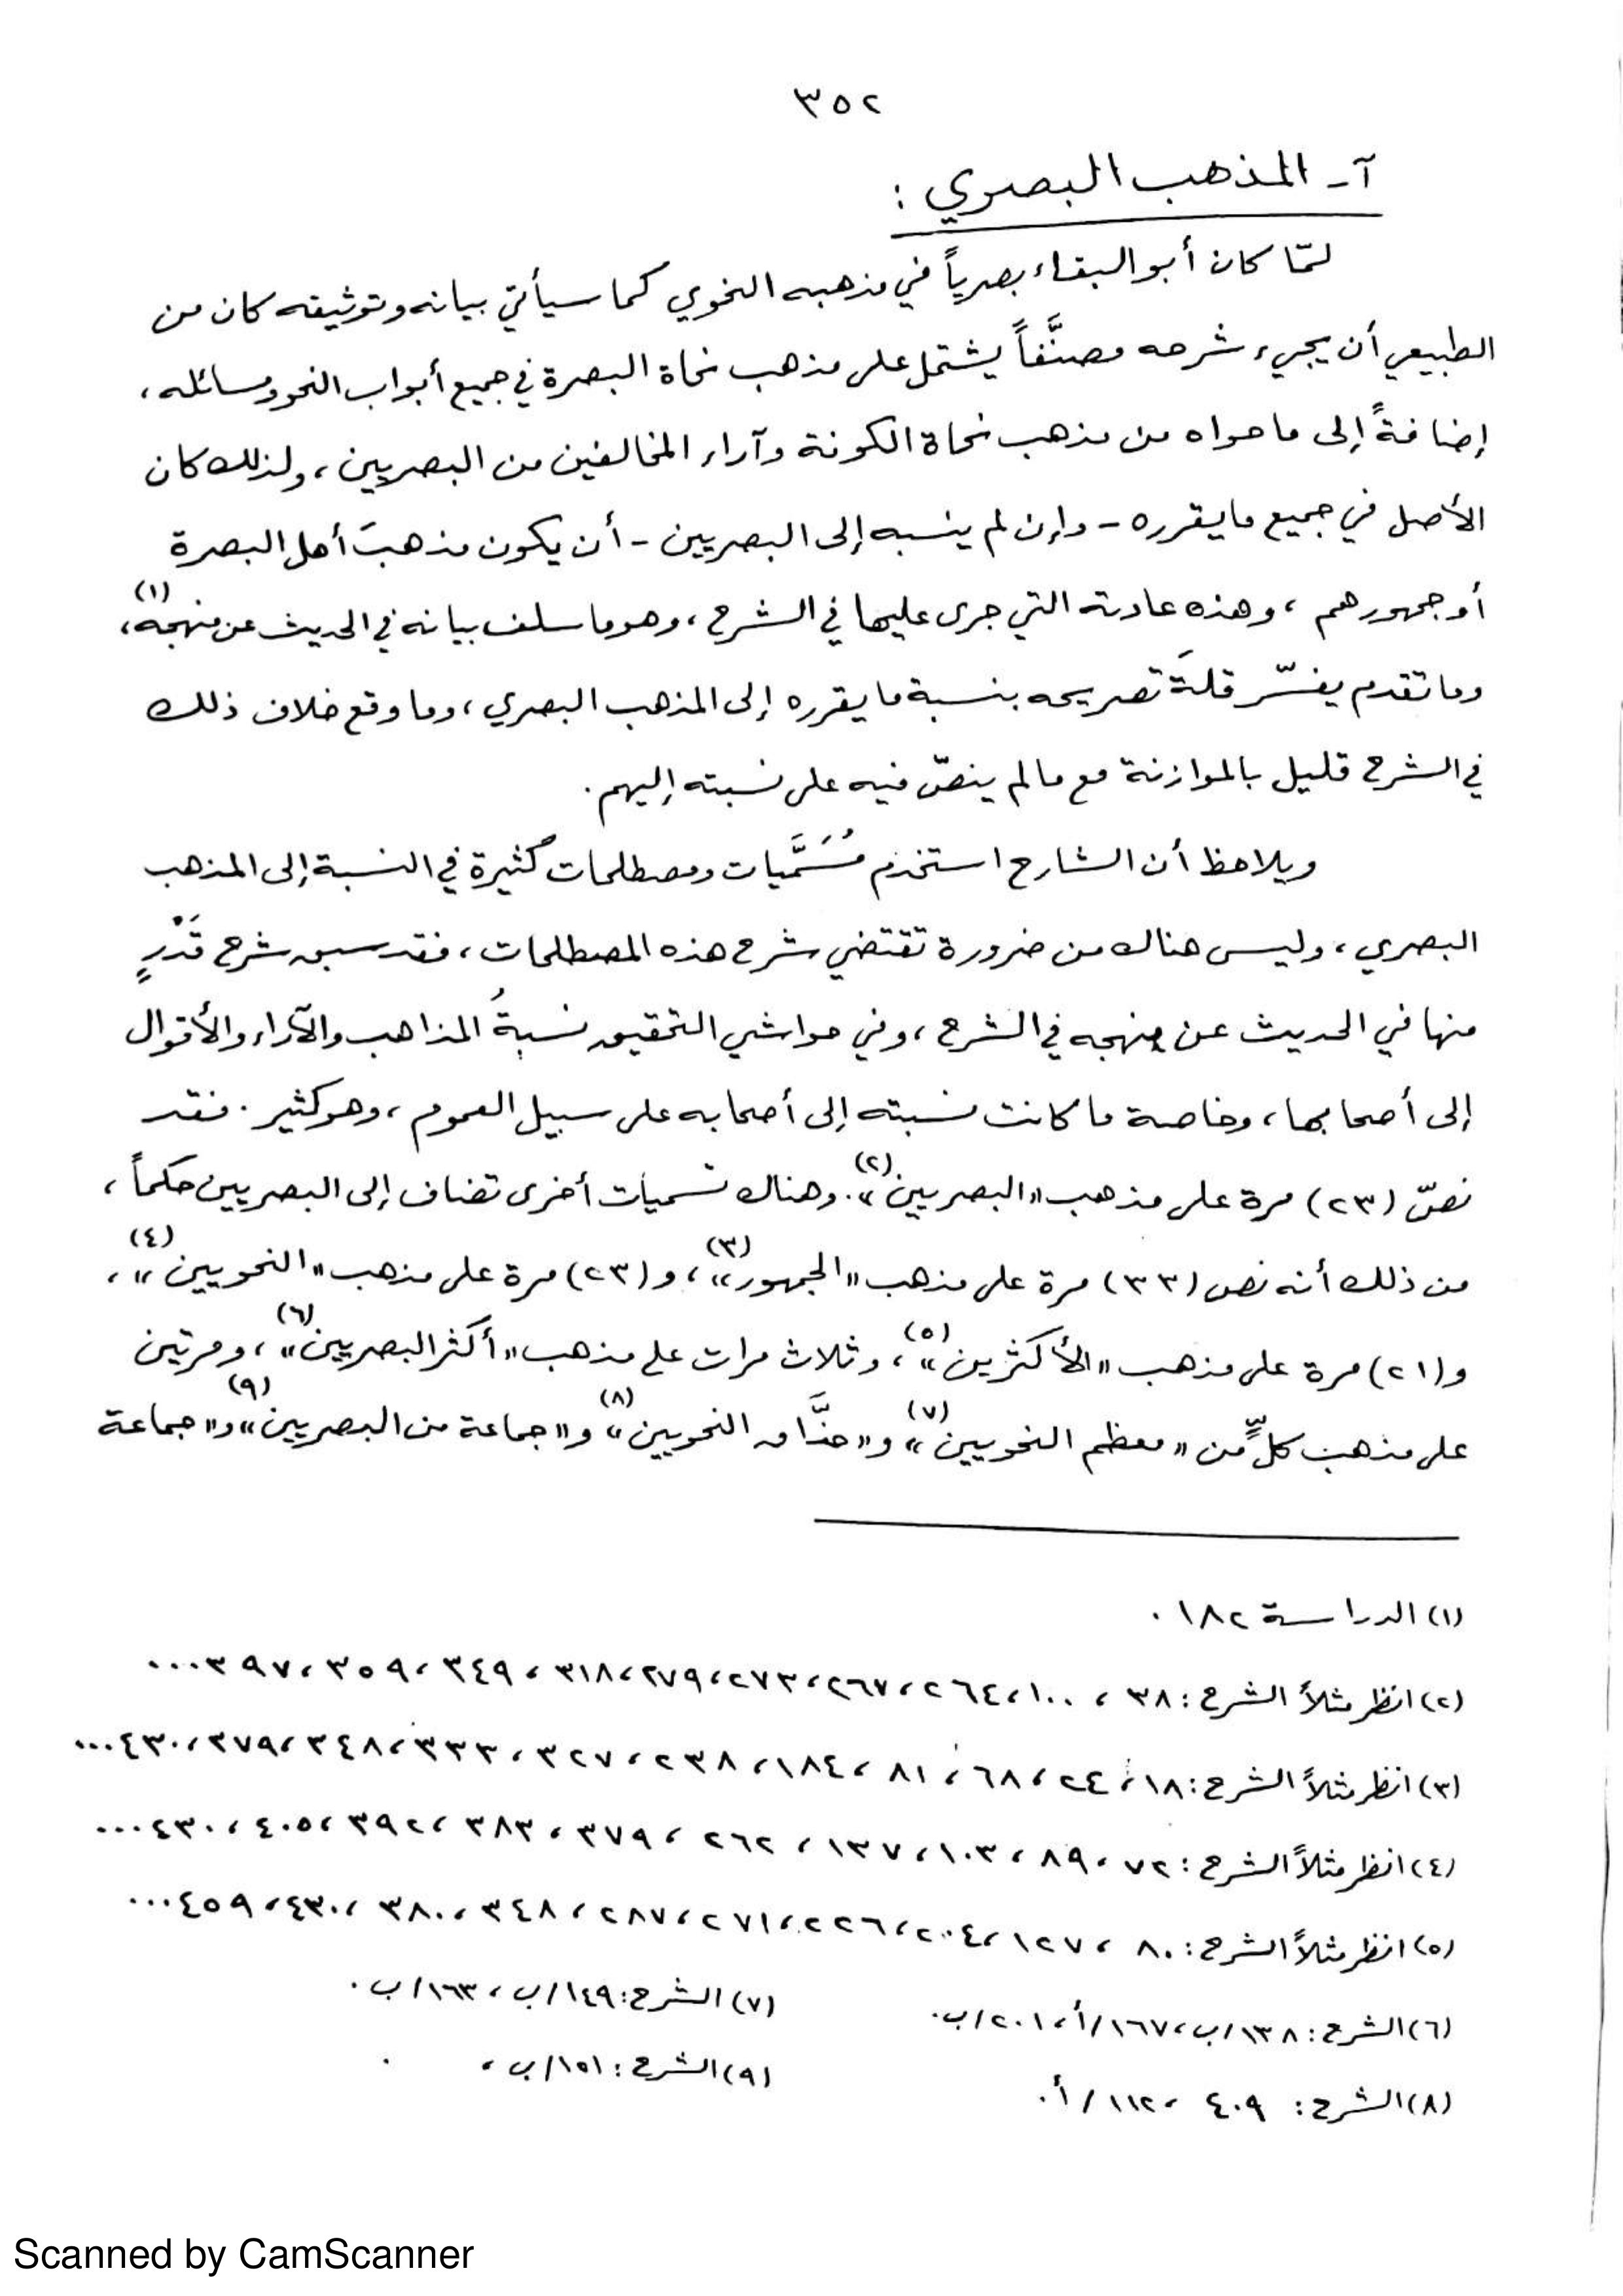 ٣٥٢
آ- المذهب البصري :
لمّا كان أبو البقاء بصرياً في مذهبه النحوي كما سيأتي بيانه وتوثيقه كان من
الطبيعي أن يجيء شرحه مصنَّفاً يشتمل على مذهب نحاة البصرة في جميع أبواب النحو ومسائله ،
إضافةً إلى ما حواه من مذهب نحاة الكوفة وآراء المخالفين من البصريين ، ولذلك كان
الأصل في جميع ما يقرره - وإن لم ينسبه إلى البصريين - أن يكون مذهبَ أهل البصرة
أو جمهورهم ، وهذه عادته التي جرى عليها في الشرح ، وهو ما سلف بيانه في الحديث عن منهجه(١) ،
وما تقدم يفسّر قلةَ تصريحه بنسبة ما يقرره إلى المذهب البصري ، وما وقع خلاف ذلك
في الشرح قليل بالموازنة مع ما لم ينصّ فيه على نسبته إليهم .
ويلاحظ أن الشارح استخدم مُسَمَّيات ومصطلحات كثيرة في النسبة إلى المذهب
البصري ، وليس هناك من ضرورة تقتضي شرح هذه المصطلحات ، فقد سبق شرح قَدْرٍ
منها في الحديث عن منهجه في الشرح ، وفي حواشي التحقيق نسبةُ المذاهب والآراء والأقوال
إلى أصحابها ، وخاصة ما كانت نسبته إلى أصحابه على سبيل العموم ، وهو كثير . فقد
نصّ (٢٣) مرة على مذهب "البصريين"(٢) . وهناك تسميات أخرى تضاف إلى البصريين حكماً ،
من ذلك أنه نص (٣٣) مرة على مذهب "الجمهور"(٣) ، و(٢٣) مرة على مذهب "النحويين"(٤) ،
و(٢١) مرة على مذهب "الأكثرين"(٥) ، وثلاث مرات على مذهب "أكثر البصريين"(٦) ، ومرتين
على مذهب كلٍّ من "معظم النحويين"(٧) و"حذَّاق النحويين"(٨) و"جماعة من البصريين"(٩) و"جماعة
(١) الدراسة ١٨٢ .
(٢) انظر مثلاً الشرح : ٣٨ ، ١٠٠ ، ٢٦٤ ، ٢٦٧ ، ٢٧٣ ، ٢٧٩ ، ٣١٨ ، ٣٤٩ ، ٣٥٩ ، ٣٩٧ ...
(٣) انظر مثلاً الشرح : ١٨ ، ٢٤ ، ٦٨ ، ٨١ ، ١٨٤ ، ٢٣٨ ، ٣٢٧ ، ٣٣٣ ، ٣٤٨ ، ٣٧٩ ، ٤٣٠ ...
(٤) انظر مثلاً الشرح : ٧٢ ، ٨٩ ، ١٠٣ ، ١٣٧ ، ٢٦٢ ، ٣٧٩ ، ٣٨٣ ، ٣٩٢ ، ٤٠٥ ، ٤٣٠ ...
(٥) انظر مثلاً الشرح : ٨٠ ، ١٢٧ ، ٢٠٤ ، ٢٢٦ ، ٢٧١ ، ٢٨٧ ، ٣٤٨ ، ٣٨٠ ، ٤٣٠ ، ٤٥٩ ...
(٦) الشرح : ١٣٨/ب ، ١٦٧/أ ، ٢٠١/ب .
(٧) الشرح : ١٤٩/ب ، ١٦٣/ب .
(٨) الشرح : ٤٠٩ ، ١١٢/أ .
(٩) الشرح : ١٥١/ب ، .
Scanned by CamScanner